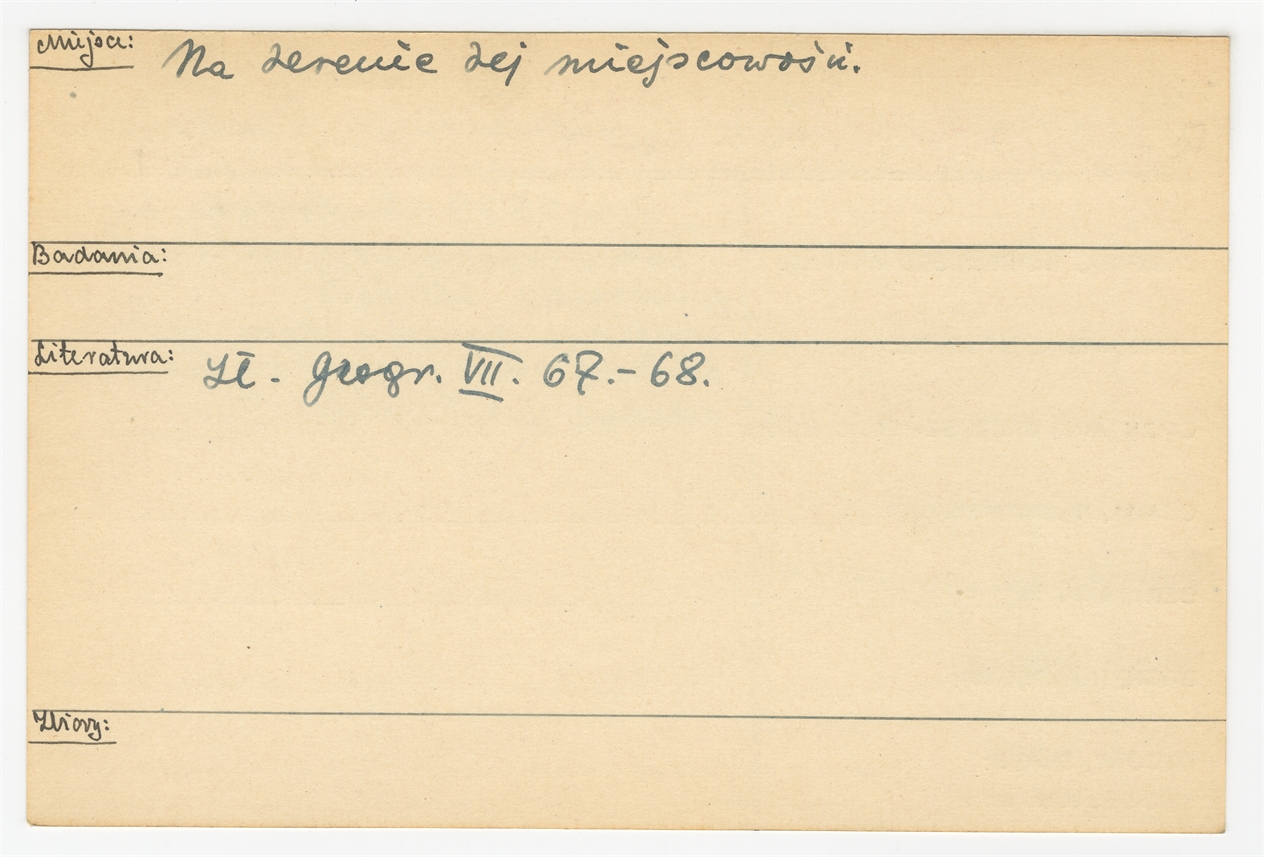 Miejsce: Na terenie tej miejscowości.
Badania:
Literatura: Sł. geogr. VII. 67.-68.
Zbiory: